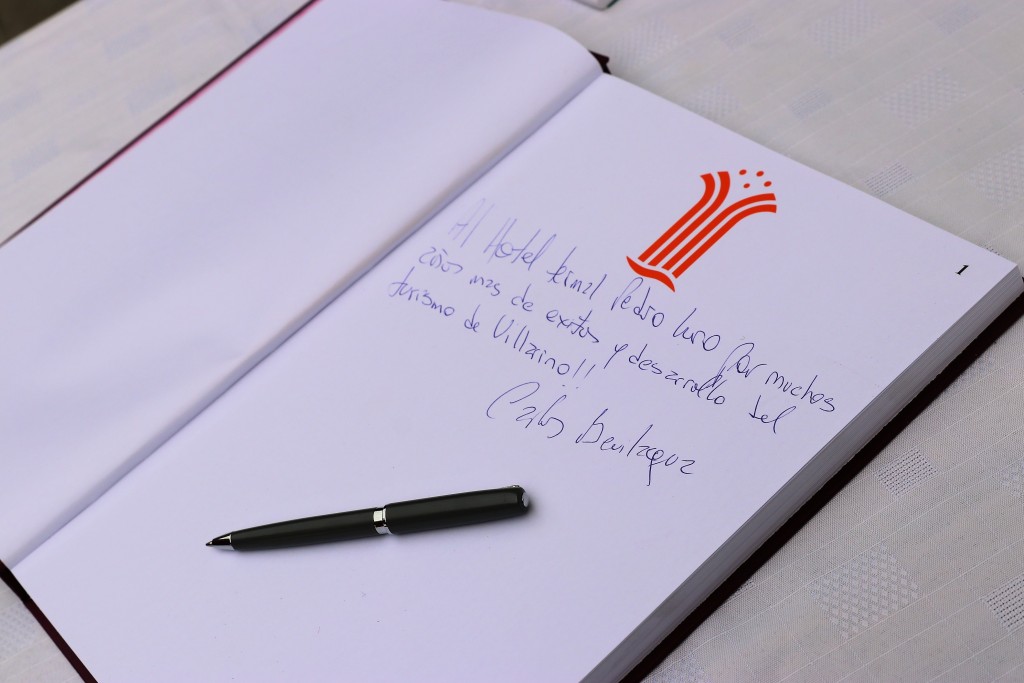 1
Al Hotel termal Pedro Luro Por muchos
años mas de exitos y desarrollo del
turismo de Villarino!!
Carlos Bevilaqua